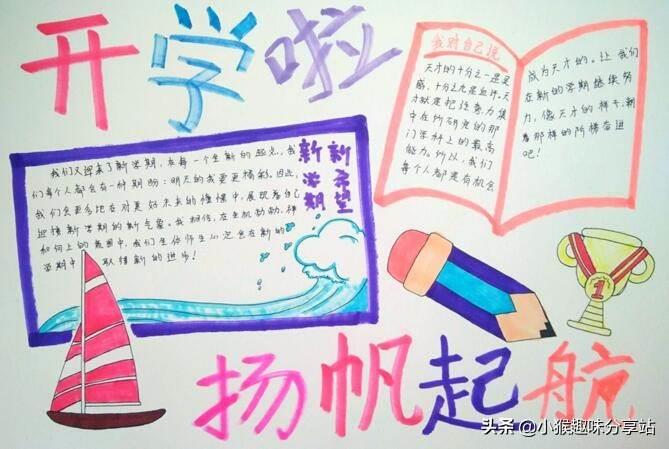 开学啦
我对自己说
天才的十分之一是灵
感,十分之九是血汗。天
才就是把注意力集
中在所研究的那
门学科上的最高
能力。所以,我们
每个人都是有机会
成为天才的。让我们
在新的学期继续努
力,像天才的样子,朝
着那样的阶梯奋进
吧!
新学期
新希望
我们又迎来了新学期,在每一个全新的起点,我
们每个人都会有一种期盼:明天的我要更精彩。因此,
我们会更多地在对美好未来的憧憬中,展现着自己
迎接新学期的新气象。我相信,在生机勃勃、祥
和向上的氛围中,我们全体师生一定会在新的
学期中 取得新的进步!
1
扬帆起航
头条 @小猴趣味分享站